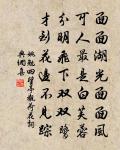 面面湖光面面風
可人最是白芙蓉
分明飛下雙雙鷺
才到花邊不見踪
姚勉四望亭觀荷花詞
典網集